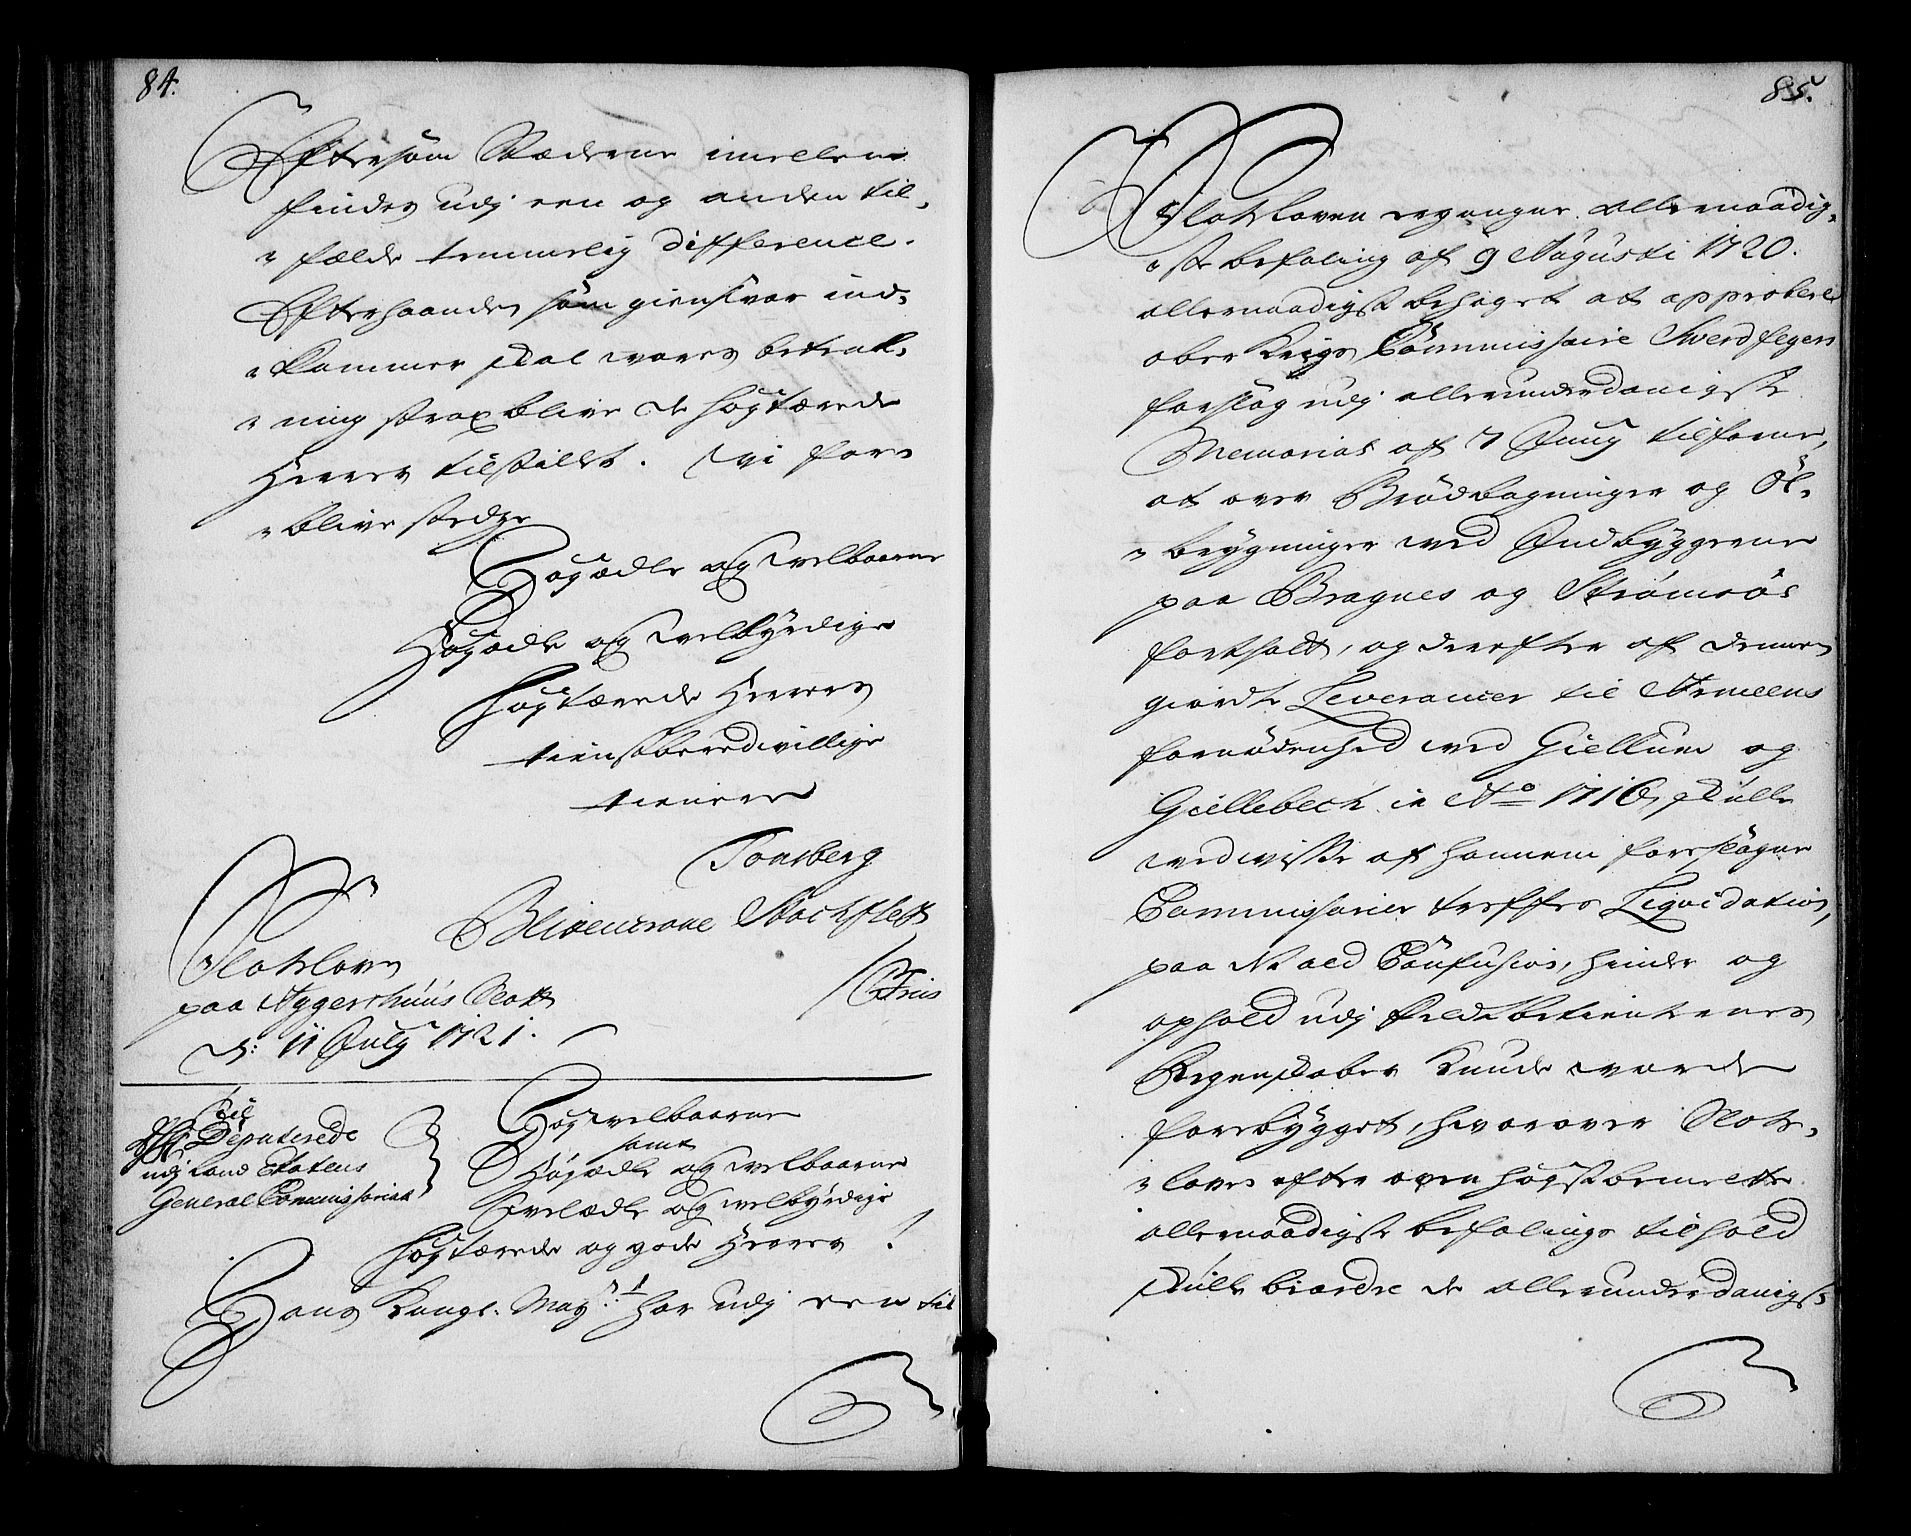 84.
Eftersom Stæderne imellem
findes udj een og anden til,
fælde temmelig difference.
Efterhaanden som giensvar ind,
kommer skal vores betenk,
ning strax blive de høgtærede
Herrer tilstillet. Vi for,
blive stedse
Høgædle og Velbaarne
Høgædle og Velbyrdige
Høgtærede Herrers
tienstberedvillige
tienere
Tonsberg
Blixencrone Stochfleth
Slotsloven
paa Aggershuus Slott
d: 11 July 1721.
/CFriis
Til
De Deputerede
udj Land Etatens
General Commissariat
Høgvelbaarne
samt
Høgædle og Velbaarne
Ivelædle og Velbyrdige
Høgtærede og gode Herrer!
Hans Kongl. Mayts har udj een til
85.
Slotsloven ergangne allernaadig,
ste befaling af 9 Augusti 1720.
allernaadigst behaget at approbere
ober Krigs Commissaire Sverdfegers
forslag udj allerunderdanigste
Memorial af 7 Juny tilforne,
at over Brødbagninger og Øl,
brygninger ved Indbyggerne
paa Bragnes og Strømsøe
fortholdt, og derefter af dennem
giordte Leverancer til Armeens
fornødenhed ved Giellum og
Gillebech in Ao 1716, skulle
ved visse af hannem foreslagne
Commissarier træffes Liqvidation,
paa det ald Confusion, hinder og
ophold udj Feldtbetienternes
Regenskaber kunde vorde
forebygget, hvorover Slots,
loven efter oven høgstbemelte
allernaadigst befalings tilhold
skulle beordre de allerunderdanigst